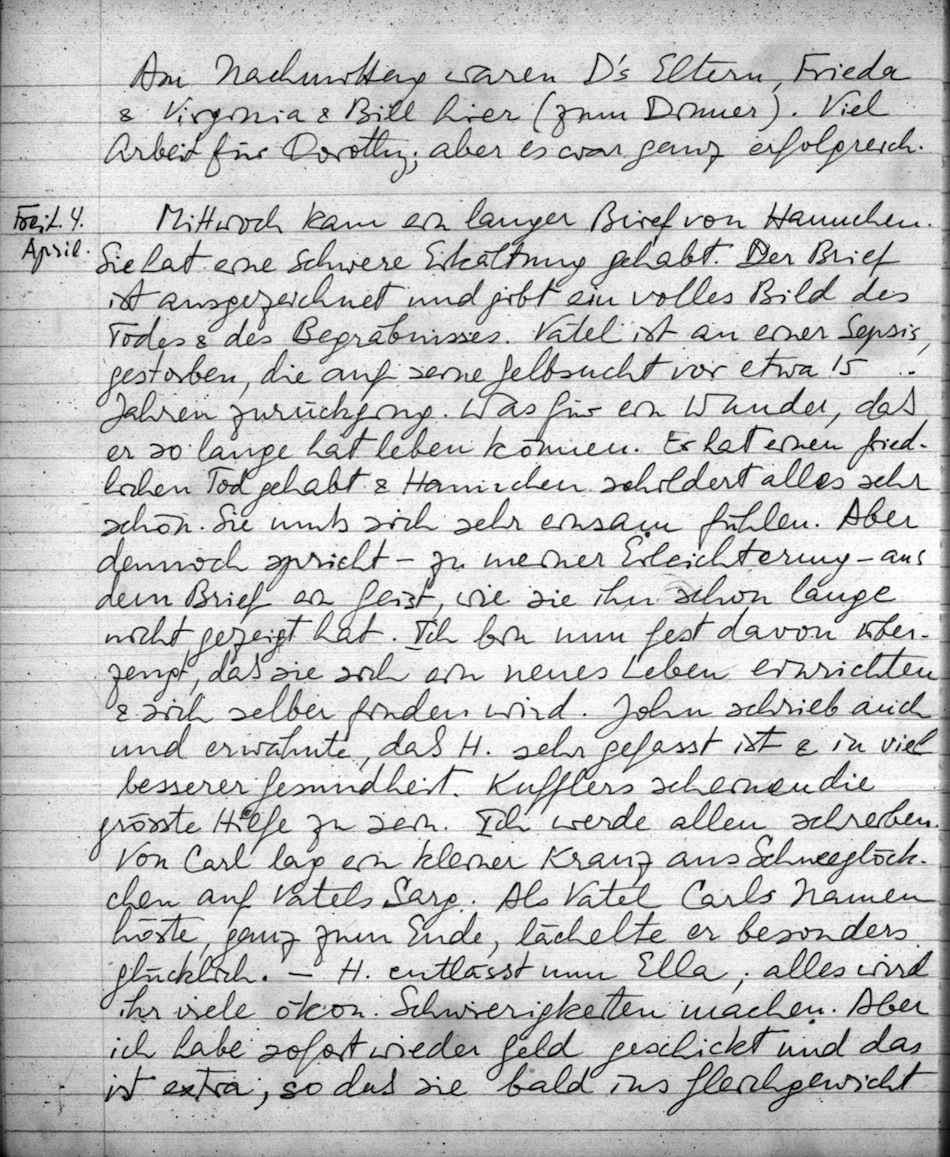 Am Nachmittag waren D's Eltern, Frieda
& Virginia & Bill hier (zum Dinner). Viel
Arbeit für Dorothy; aber es war ganz erfolgreich.
Freit. 4.
April.
Mittwoch kam ein langer Brief von Hannchen.
Sie hat eine schwere Erkältung gehabt. Der Brief
ist ausgezeichnet und gibt ein volles Bild des
Todes & des Begräbnisses. Vatel ist an einer Sepsis,
gestorben, die auf seine Gelbsucht vor etwa 15
Jahren zurückging. Was für ein Wunder, daß
er so lange hat leben können. Er hat einen fried-
lichen Tod gehabt & Hannchen schildert alles sehr
schön. Sie muß sich sehr einsam fühlen. Aber
dennoch spricht – zu meiner Erleichterung – aus
dem Brief ein Geist, wie sie ihn schon lange
nicht gezeigt hat. Ich bin nun fest davon über-
zeugt, daß sie sich ein neues Leben einrichten
& sich selber finden wird. John schrieb auch
und erwähnte, daß H. sehr gefasst ist & in viel
besserer Gesundheit. Kufflers scheinen die
grösste Hilfe zu sein. Ich werde allen schreiben.
Von Carl lag ein kleiner Kranz aus Schneeglöck-
chen auf Vatels Sarg. Als Vatel Carls Namen
hörte, ganz zum Ende, lächelte er besonders
glücklich. – H. entlässt nun Ella; alles wird
ihr viele ökon. Schwierigkeiten machen. Aber
ich habe sofort wieder Geld geschickt und das
ist extra, so daß sie bald ins Gleichgewicht